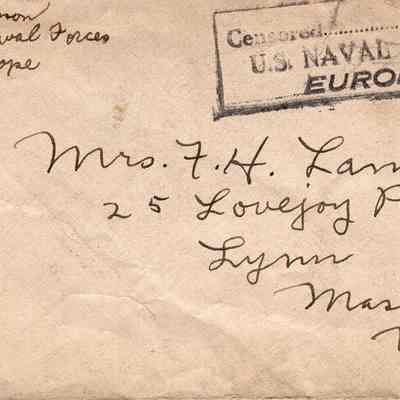 son
val Forces
ope
Censored..............
U.S. NAVAL
EURO
Mrs. F. H. Lam
25 Lovejoy P
Lynn
Mas